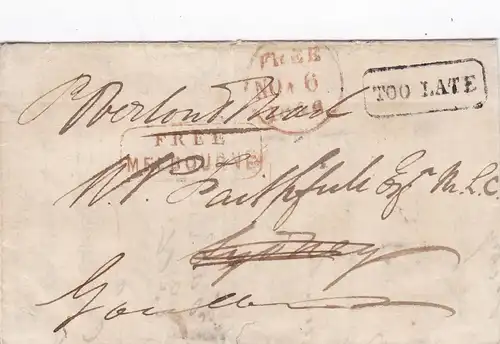 FREE
NO 6
TOO LATE
P Overland Mail
FREE
MELBOURNE
W. P. Faithfull Esqr M.L.C.
Sydney
Goulburn